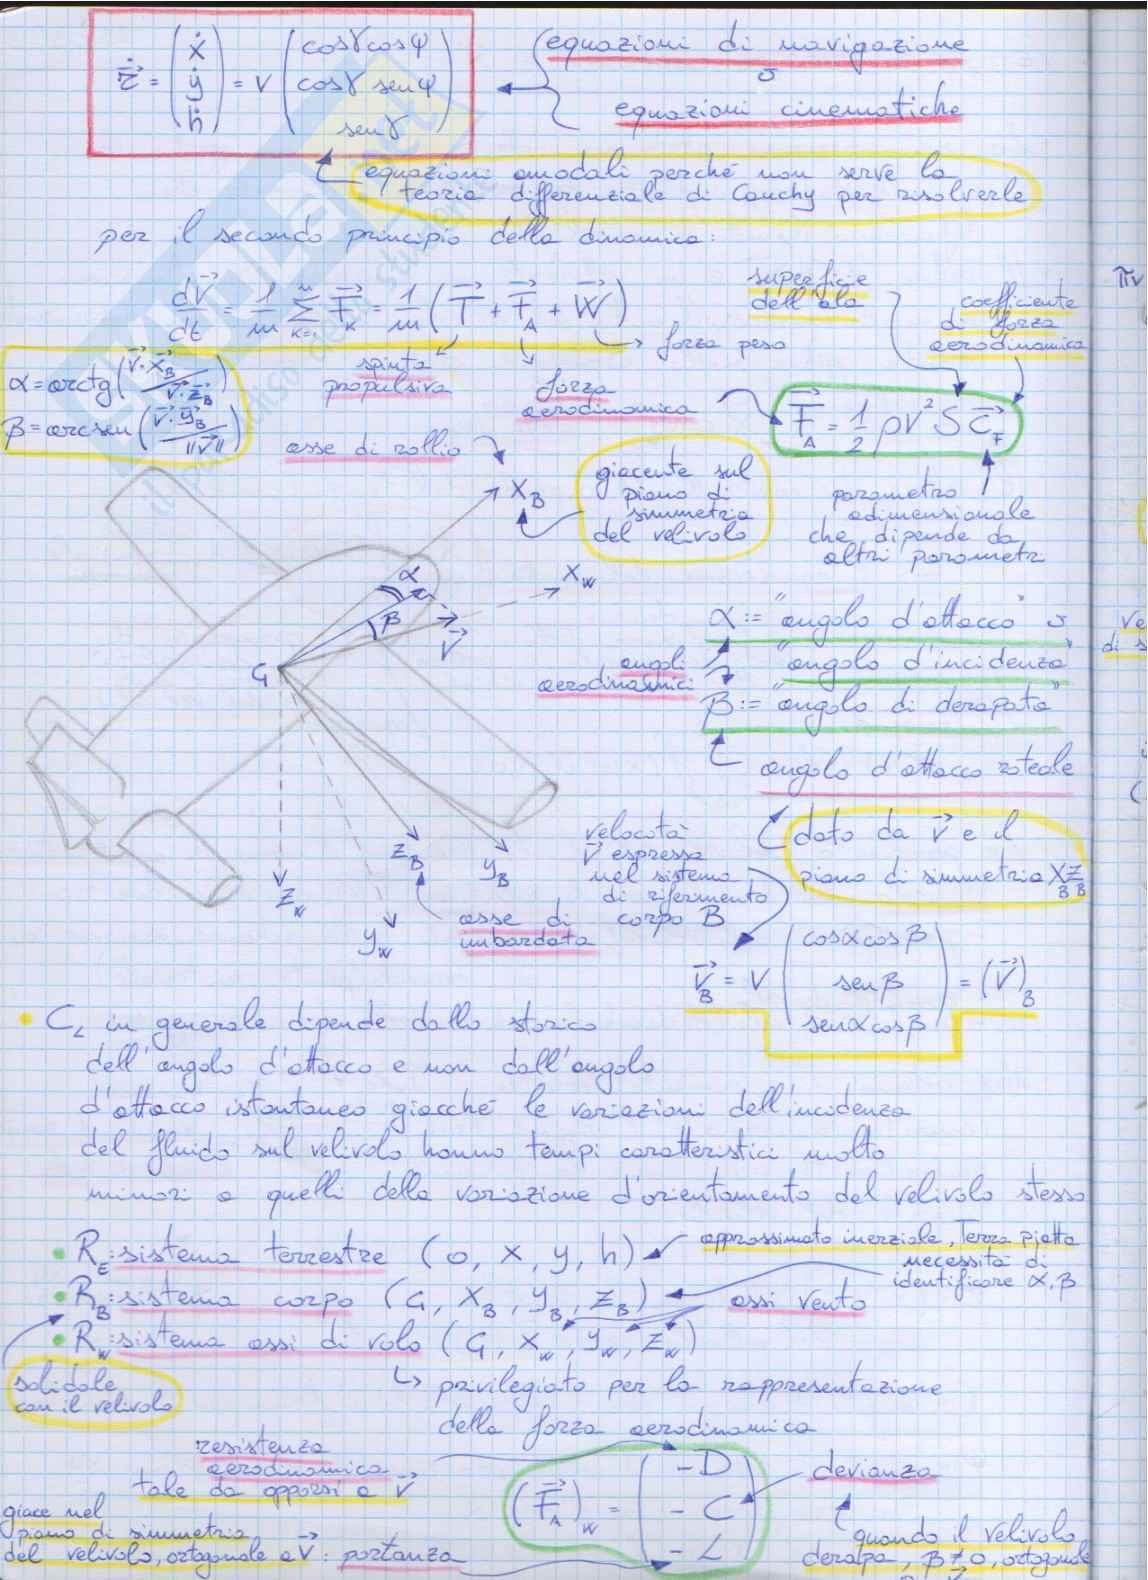 ṙ = (ẋ ẏ ḣ) = V (cosγ cosψ
cosγ senψ
senγ)
equazioni di navigazione
o
equazioni cinematiche
equazioni amodali perché non serve la
teoria differenziale di Cauchy per risolverle
per il secondo principio della dinamica:
dV/dt = 1/m Σ F_K = 1/m (T + F_A + W)
spinta
propulsiva
forza
aerodinamica
forza peso
superficie
dell'ala
coefficiente
di forza
aerodinamica
F_A = 1/2 ρV² S C_F
parametro
adimensionale
che dipende da
altri parametri
α = arctg (V · X_B / V · Z_B)
β = arcsen (V · y_B / ||V||)
asse di rollio
X_B
giacente sul
piano di
simmetria
del velivolo
α
β
V
X_W
G
Z_B
y_B
Z_W
y_W
asse di
imbardata
α := "angolo d'attacco" o
"angolo d'incidenza"
angoli
aerodinamici
β := "angolo di derapata"
angolo d'attacco laterale
dato da V e il
piano di simmetria X_B Z_B
velocità
V espressa
nel sistema
di riferimento
corpo B
V_B = V (cosα cosβ
senβ
senα cosβ) = (V)_B
• C_L in generale dipende dallo storico
dell'angolo d'attacco e non dall'angolo
d'attacco istantaneo giacché le variazioni dell'incidenza
del fluido sul velivolo hanno tempi caratteristici molto
minori a quelli della variazione d'orientamento del velivolo stesso
• R_E: sistema terrestre (O, X, y, h)
approssimato inerziale, Terra piatta
• R_B: sistema corpo (G, X_B, y_B, Z_B)
necessità di
identificare α, β
assi vento
• R_W: sistema assi di volo (G, X_W, y_W, Z_W)
solidale
con il velivolo
privilegiato per la rappresentazione
della forza aerodinamica
resistenza
aerodinamica
tale da opporsi a V
giace nel
piano di simmetria
del velivolo, ortogonale a V: portanza
(F_A)_W = (-D
-C
-L)
devianza
quando il velivolo
derapa, β ≠ 0, ortogonale